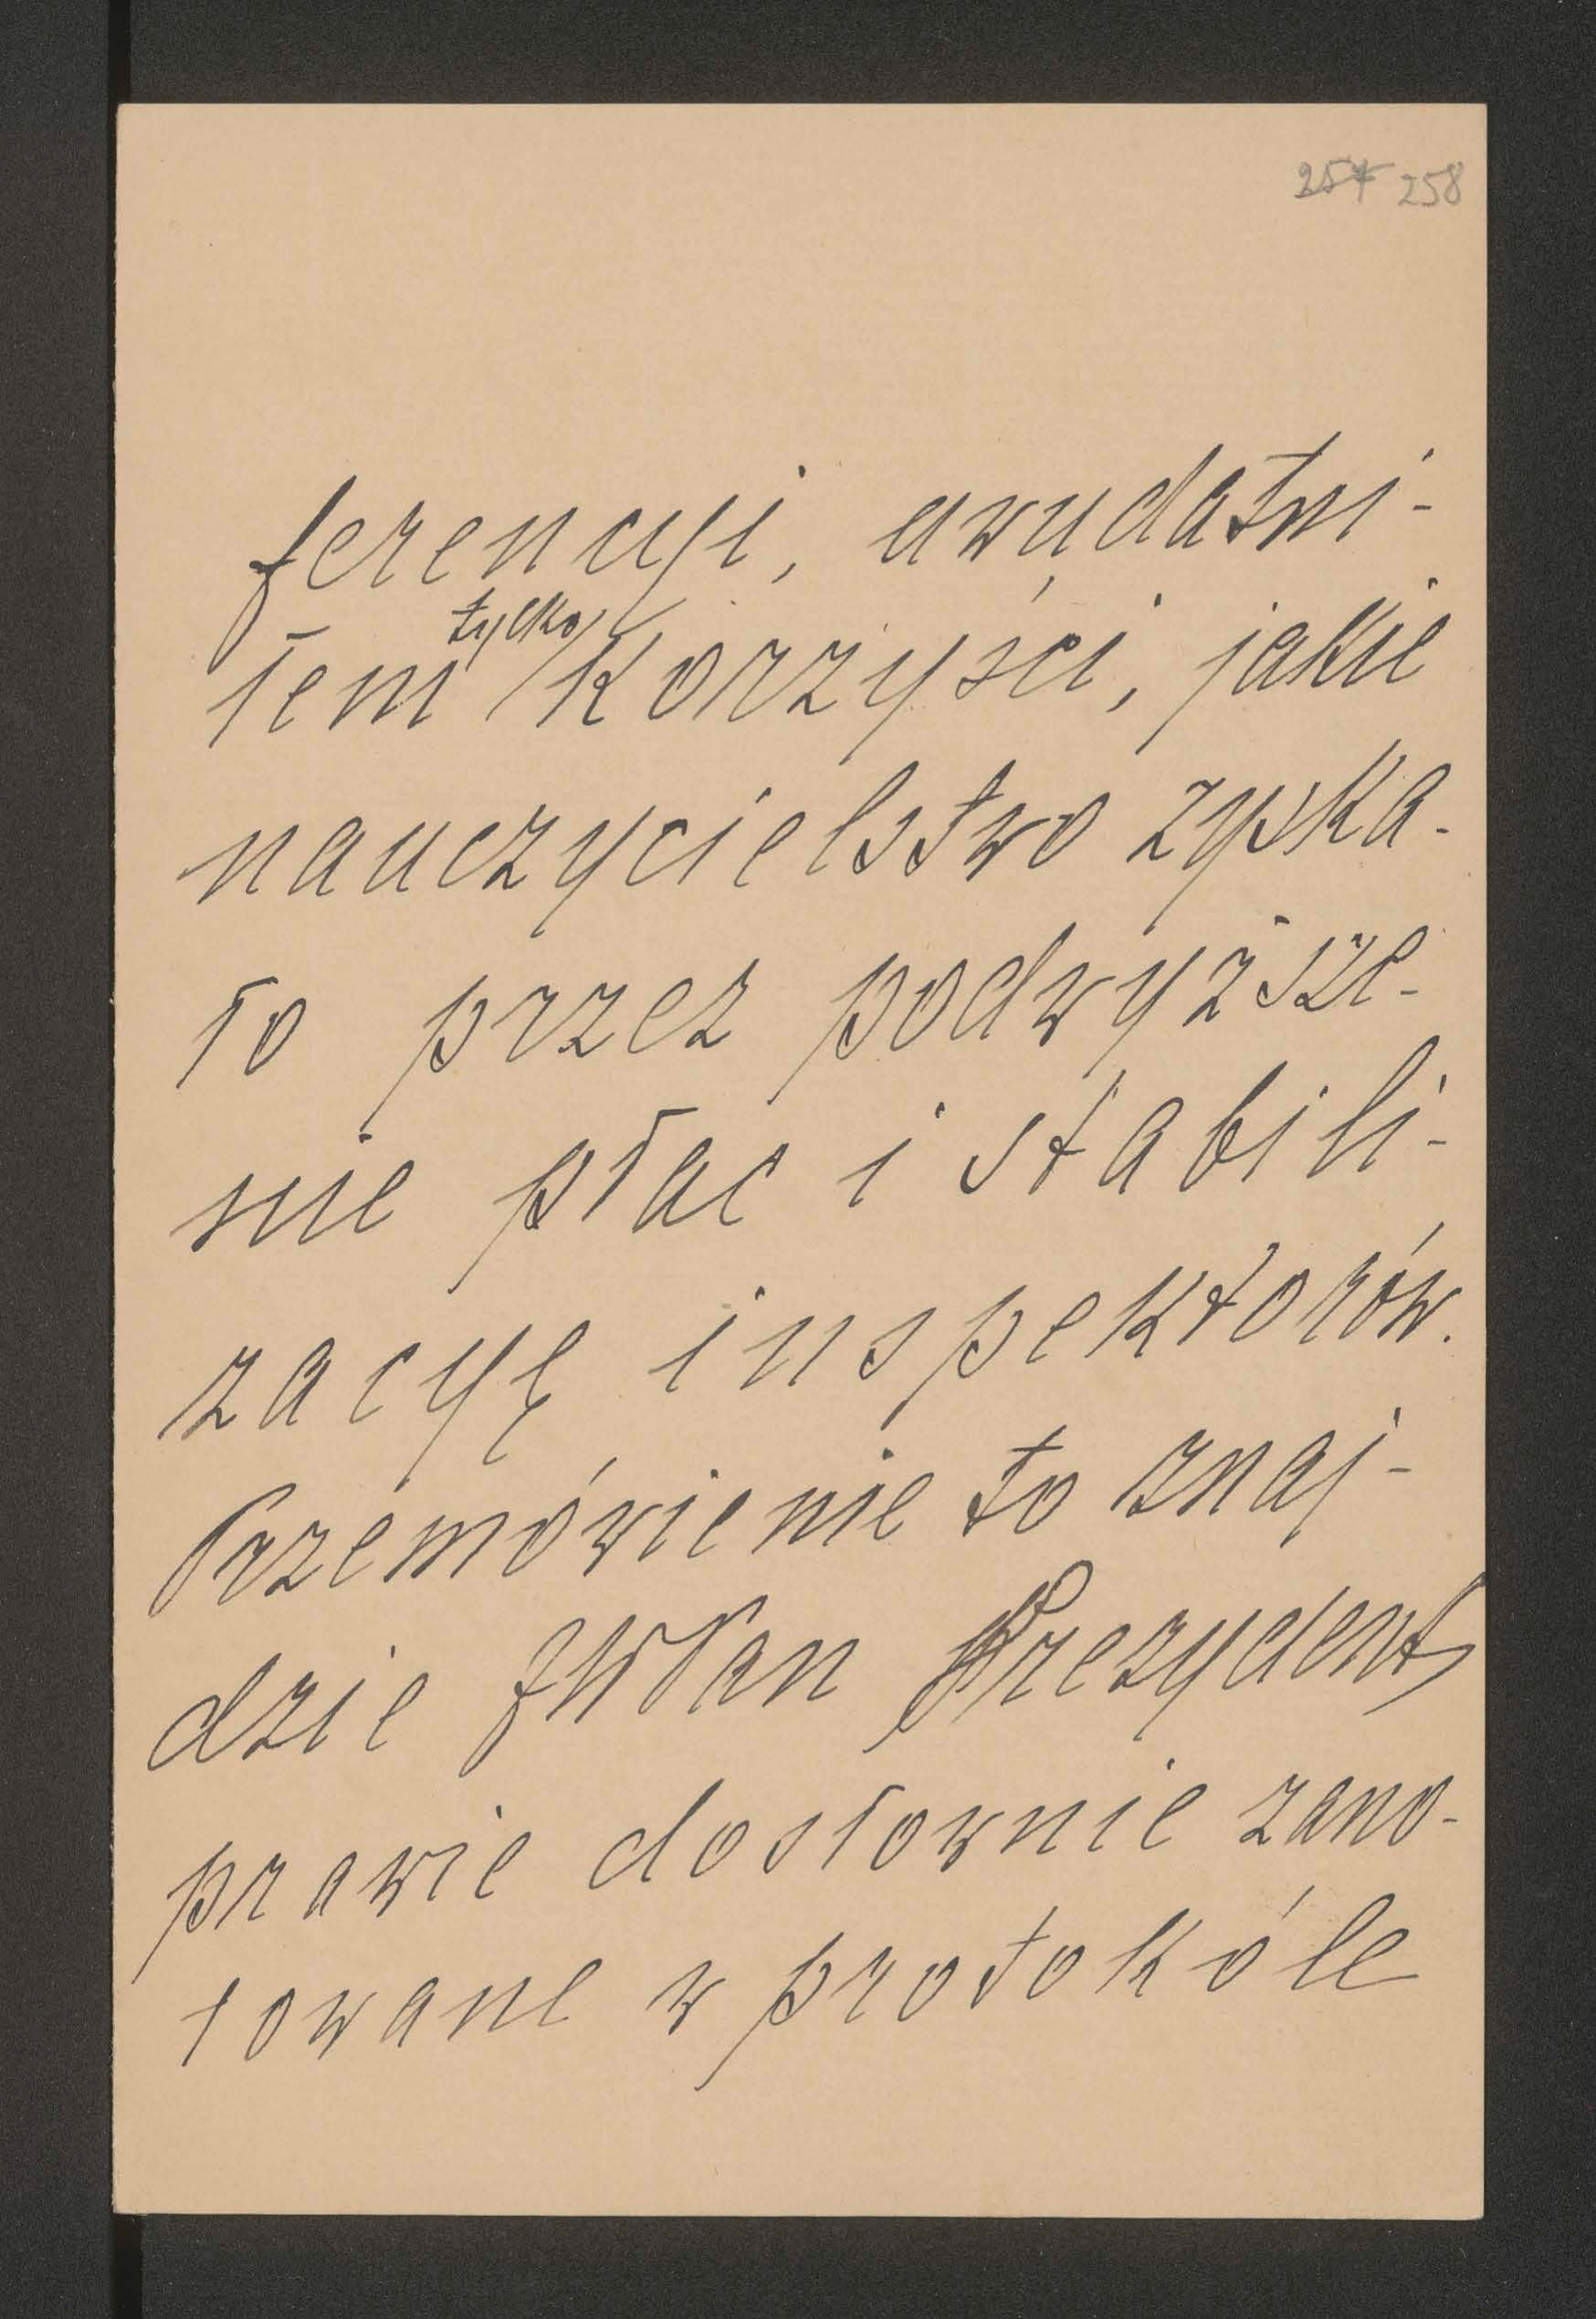 257 258
ferencyi, uwydatni-
łem tylko korzyści, jakie
nauczycielstwo zyska-
ło przez podwyższe-
nie płac i stabili-
zacyę inspektorów.
Przemówienie to znaj-
dzie JWPan Prezydent
prawie dosłownie zano-
towane w protokóle